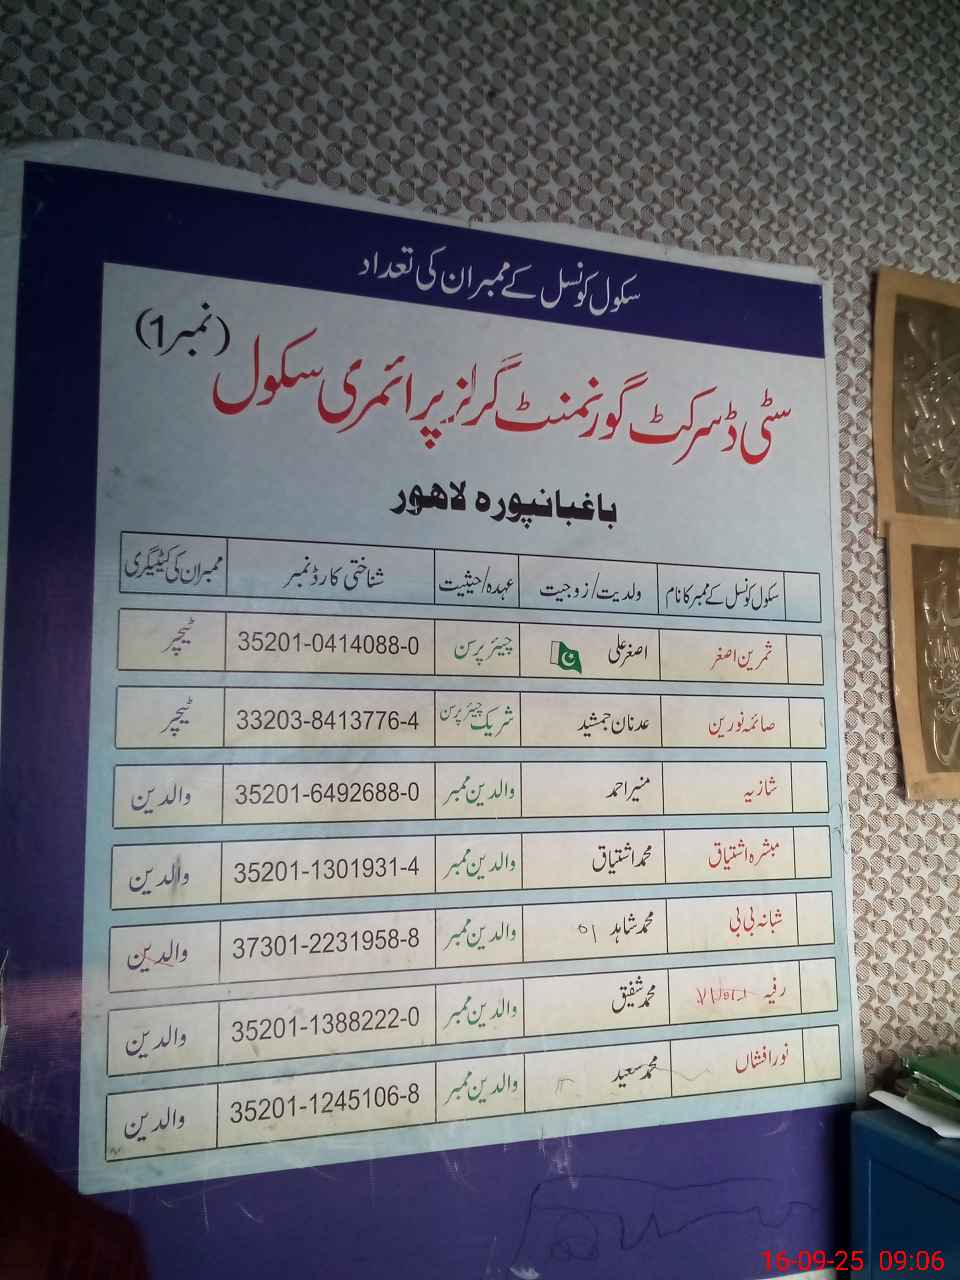 سکول کونسل کے ممبران کی تعداد
سٹی ڈسرکٹ گورنمنٹ گرلز پرائمری سکول (نمبر 1)
باغبانپورہ لاہور
سکول کونسل کے ممبر کا نام ولدیت/زوجیت عہدہ/حیثیت شناختی کارڈ نمبر ممبران کی کیٹیگری
ثمرین اصغر اصغر علی چیئر پرسن 35201-0414088-0 ٹیچر
صائمہ نورین عدنان جمشید شریک چیئر پرسن 33203-8413776-4 ٹیچر
شازیہ منیر احمد والدین ممبر 35201-6492688-0 والدین
مبشرہ اشتیاق محمد اشتیاق والدین ممبر 35201-1301931-4 والدین
شبانہ بی بی محمد شاہد والدین ممبر 37301-2231958-8 والدین
رفیہ محمد شفیق والدین ممبر 35201-1388222-0 والدین
نور افشاں محمد سعید والدین ممبر 35201-1245106-8 والدین
16-09-25 09:06